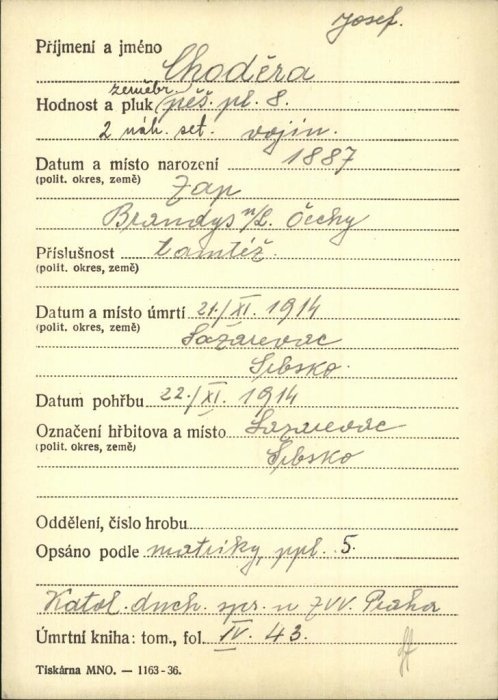 Josef.
Příjmení a jméno Choděra
zeměbr.
Hodnost a pluk (pěš. pl. 8.
2 náh. set. vojín.
Datum a místo narození 1887
(polit. okres, země) Zap
Brandys n/L. Čechy
Příslušnost tamtéž.
(polit. okres, země)
Datum a místo úmrtí 21./XI. 1914
(polit. okres, země) Lazarevac
Srbsko.
Datum pohřbu 22./XI. 1914
Označení hřbitova a místo Lazarevac
(polit. okres, země) Srbsko
Oddělení, číslo hrobu
Opsáno podle matriky, ppl. 5.
Katol. duch. spr. u ZVV. Praha
Úmrtní kniha: tom., fol. IV. 43.
Tiskárna MNO. — 1163-36.